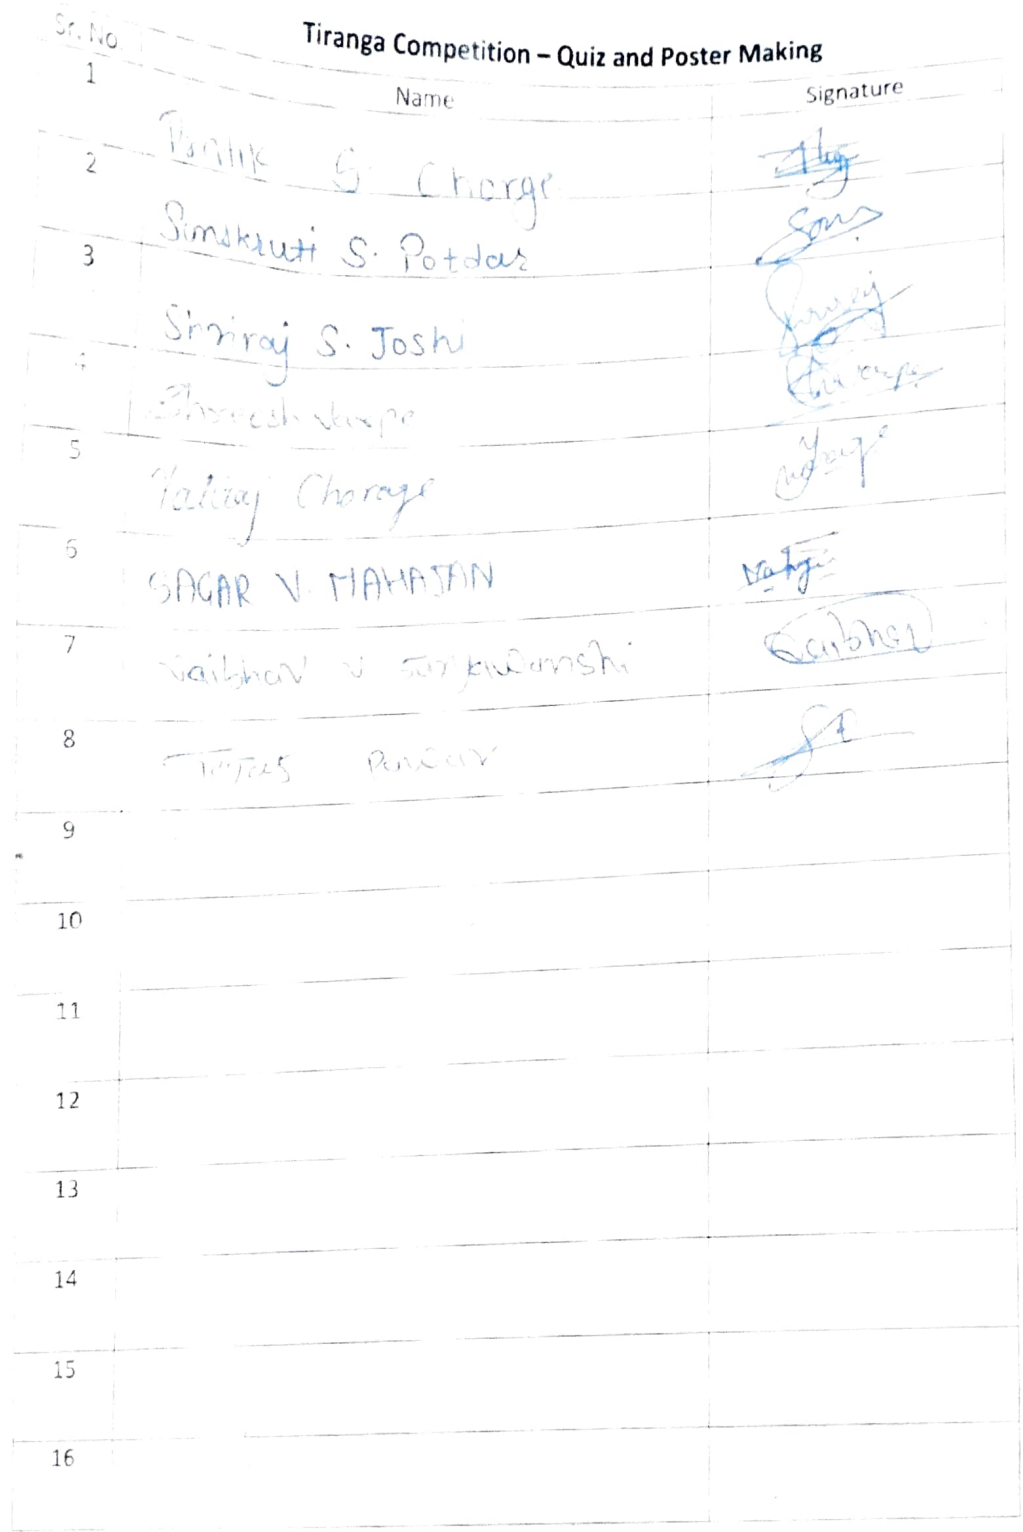 Tiranga Competition – Quiz and Poster Making
Sr. No Name Signature
1 S Charge
2 Sanskruti S. Potdar
3 Shriraj S. Joshi
4
5 Chorage
6 SAGAR V. MAHAJAN
7 Vaibhav V Suryawanshi Vaibhav
8 Tejas Pawar
9
10
11
12
13
14
15
16